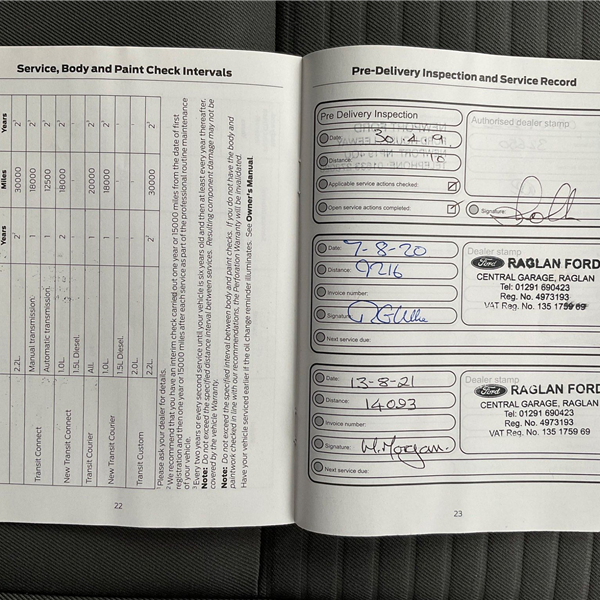 Service, Body and Paint Check Intervals
Years Miles Years
2.2L. 2¹ 30000 2¹
Transit Connect Manual transmission. 1 18000 2¹
Automatic transmission. 1 12500 2¹
New Transit Connect 1.0L. 2 18000 2¹
1.5L Diesel. - - -
Transit Courier All. 1 20000 2¹
New Transit Courier 1.0L. 1 18000 2¹
1.5L Diesel. - - -
Transit Custom 2.0L. - - -
2.2L. 2¹ 30000 2¹
¹ Please ask your dealer for details.
² We recommend that you have an interim check carried out one year or 15000 miles from the date of first
registration and then one year or 15000 miles after each service as part of the professional routine maintenance
of your vehicle.
³ Every two years or every second service until your vehicle is six years old and then at least every year thereafter.
Note: Do not exceed the specified distance interval between services. Resulting component damage may not be
covered by the vehicle Warranty.
Note: Do not exceed the specified interval between body and paint checks. If you do not have the body and
paintwork checked in line with our recommendations, the Perforation Warranty will be invalidated.
Have your vehicle serviced earlier if the oil change reminder illuminates. See Owner's Manual.
22
Pre-Delivery Inspection and Service Record
Pre Delivery Inspection
Authorised dealer stamp
Date: 30.4.19
Distance:
Applicable service actions checked:
Open service actions completed:
Signature:
Date: 7-8-20
Distance: 9216
Invoice number:
Signature:
Next service due:
Dealer stamp
Ford RAGLAN FORD
CENTRAL GARAGE, RAGLAN
Tel: 01291 690423
Reg. No. 4973193
VAT Reg. No. 135 1759 69
Date: 13-8-21
Distance: 14093
Invoice number:
Signature: W.Morgan.
Next service due:
Dealer stamp
Ford RAGLAN FORD
CENTRAL GARAGE, RAGLAN
Tel: 01291 690423
Reg. No. 4973193
VAT Reg. No. 135 1759 69
23